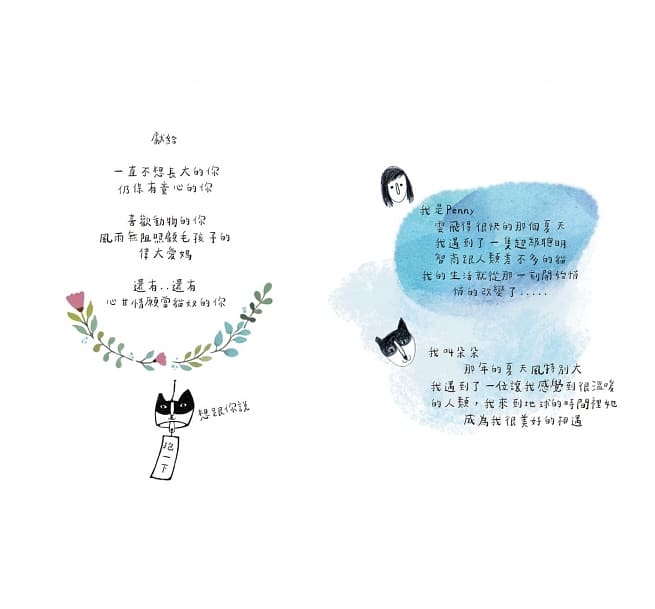 獻給
一直不想長大的你
仍保有童心的你
喜歡動物的你
風雨無阻照顧毛孩子的
偉大愛媽
還有..還有
心甘情願當貓奴的你
想跟你說
抱一下
我是Penny
雲飛得很快的那個夏天
我遇到了一隻超級聰明
智商跟人類差不多的貓
我的生活就從那一刻開始悄
悄的改變了.....
我叫朵朵
那年的夏天風特別大
我遇到了一位讓我感覺到很溫暖
的人類，我來到地球的時間裡她
成為我很美好的相遇